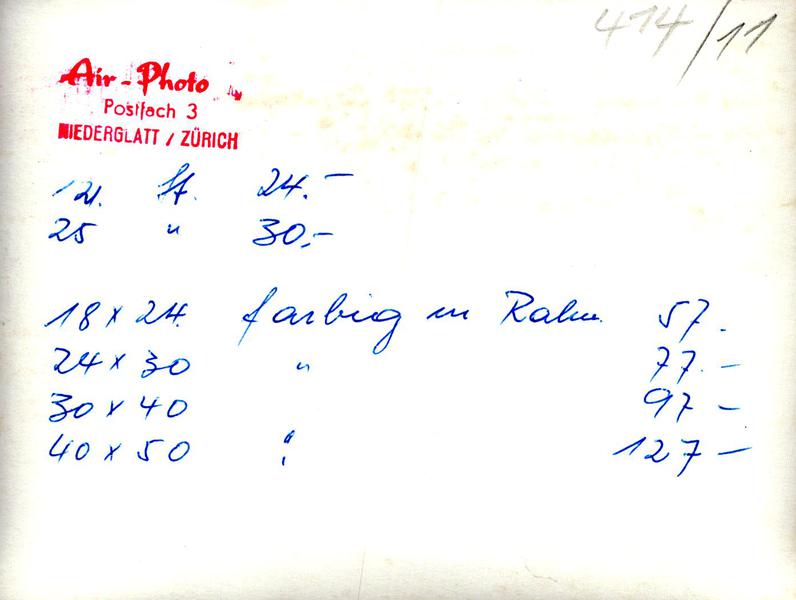 414/11
Air-Photo
Postfach 3
NIEDERGLATT / ZÜRICH
12 St. 24.-
25 " 30.-
18 x 24 farbig in Rahm. 57.
24 x 30 " 77.-
30 x 40 97-
40 x 50 " 127-